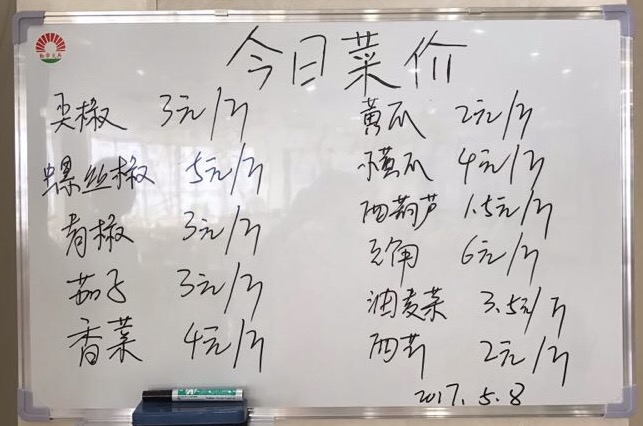 今日菜价
尖椒 3元/斤
螺丝椒 5元/斤
青椒 3元/斤
茄子 3元/斤
香菜 4元/斤
黄瓜 2元/斤
水黄瓜 4元/斤
西葫芦 1.5元/斤
豆角 6元/斤
油麦菜 3.5元/斤
西芹 2元/斤
2017.5.8